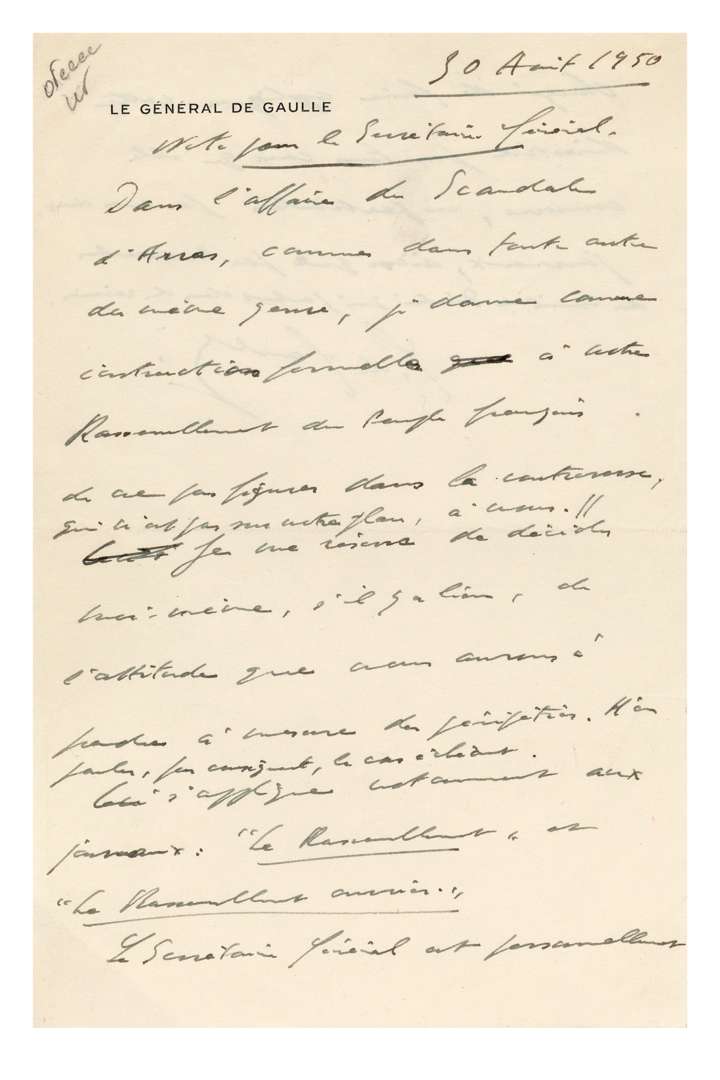 30 Août 1950
LE GÉNÉRAL DE GAULLE
Note pour le Secrétaire Général.
Dans l'affaire du Scandale
d'Arras, comme dans toute autre
du même genre, je donne comme
instruction formelle à notre
Rassemblement du Peuple français
de ne pas figurer dans la controverse,
qui n'est pas sur notre plan, à nous.
Je me réserve de décider
moi-même, s'il y a lieu, de
l'attitude que nous aurons à
prendre à mesure des péripéties. M'en
parler, par conséquent, le cas échéant.
Ceci s'applique notamment aux
journaux : "Le Rassemblement" et
"Le Rassemblement ouvrier."
Le Secrétaire Général est personnellement